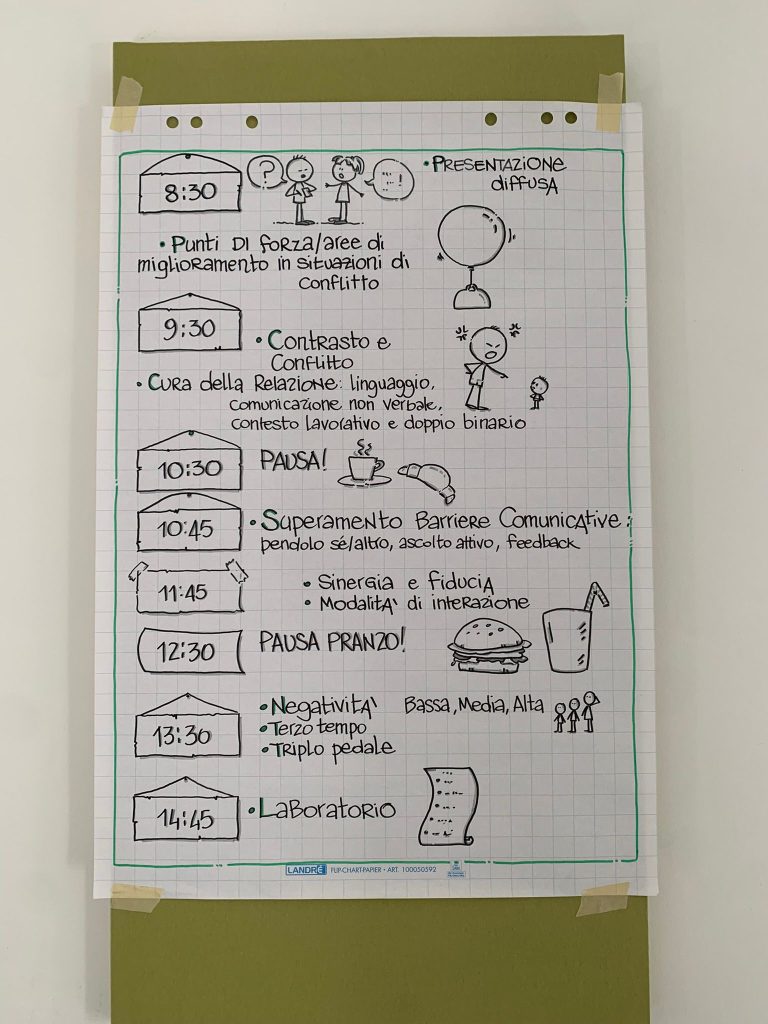 8:30
?
...!
• PRESENTAZIONE
diffusa
• Punti DI forza/aree di
miglioramento in situazioni di
conflitto
9:30
• Contrasto e
Conflitto
• Cura della Relazione: linguaggio,
comunicazione non verbale,
contesto lavorativo e doppio binario
10:30
PAUSA!
10:45
• Superamento Barriere Comunicative:
pendolo sé/altro, ascolto attivo, feedback
11:45
• Sinergia e fiducia
• Modalità di interazione
12:30
PAUSA PRANZO!
13:30
• Negatività Bassa, Media, Alta
• Terzo tempo
• Triplo pedale
14:45
• Laboratorio
LANDRÉ FLIP-CHART-PAPIER • ART. 100050592